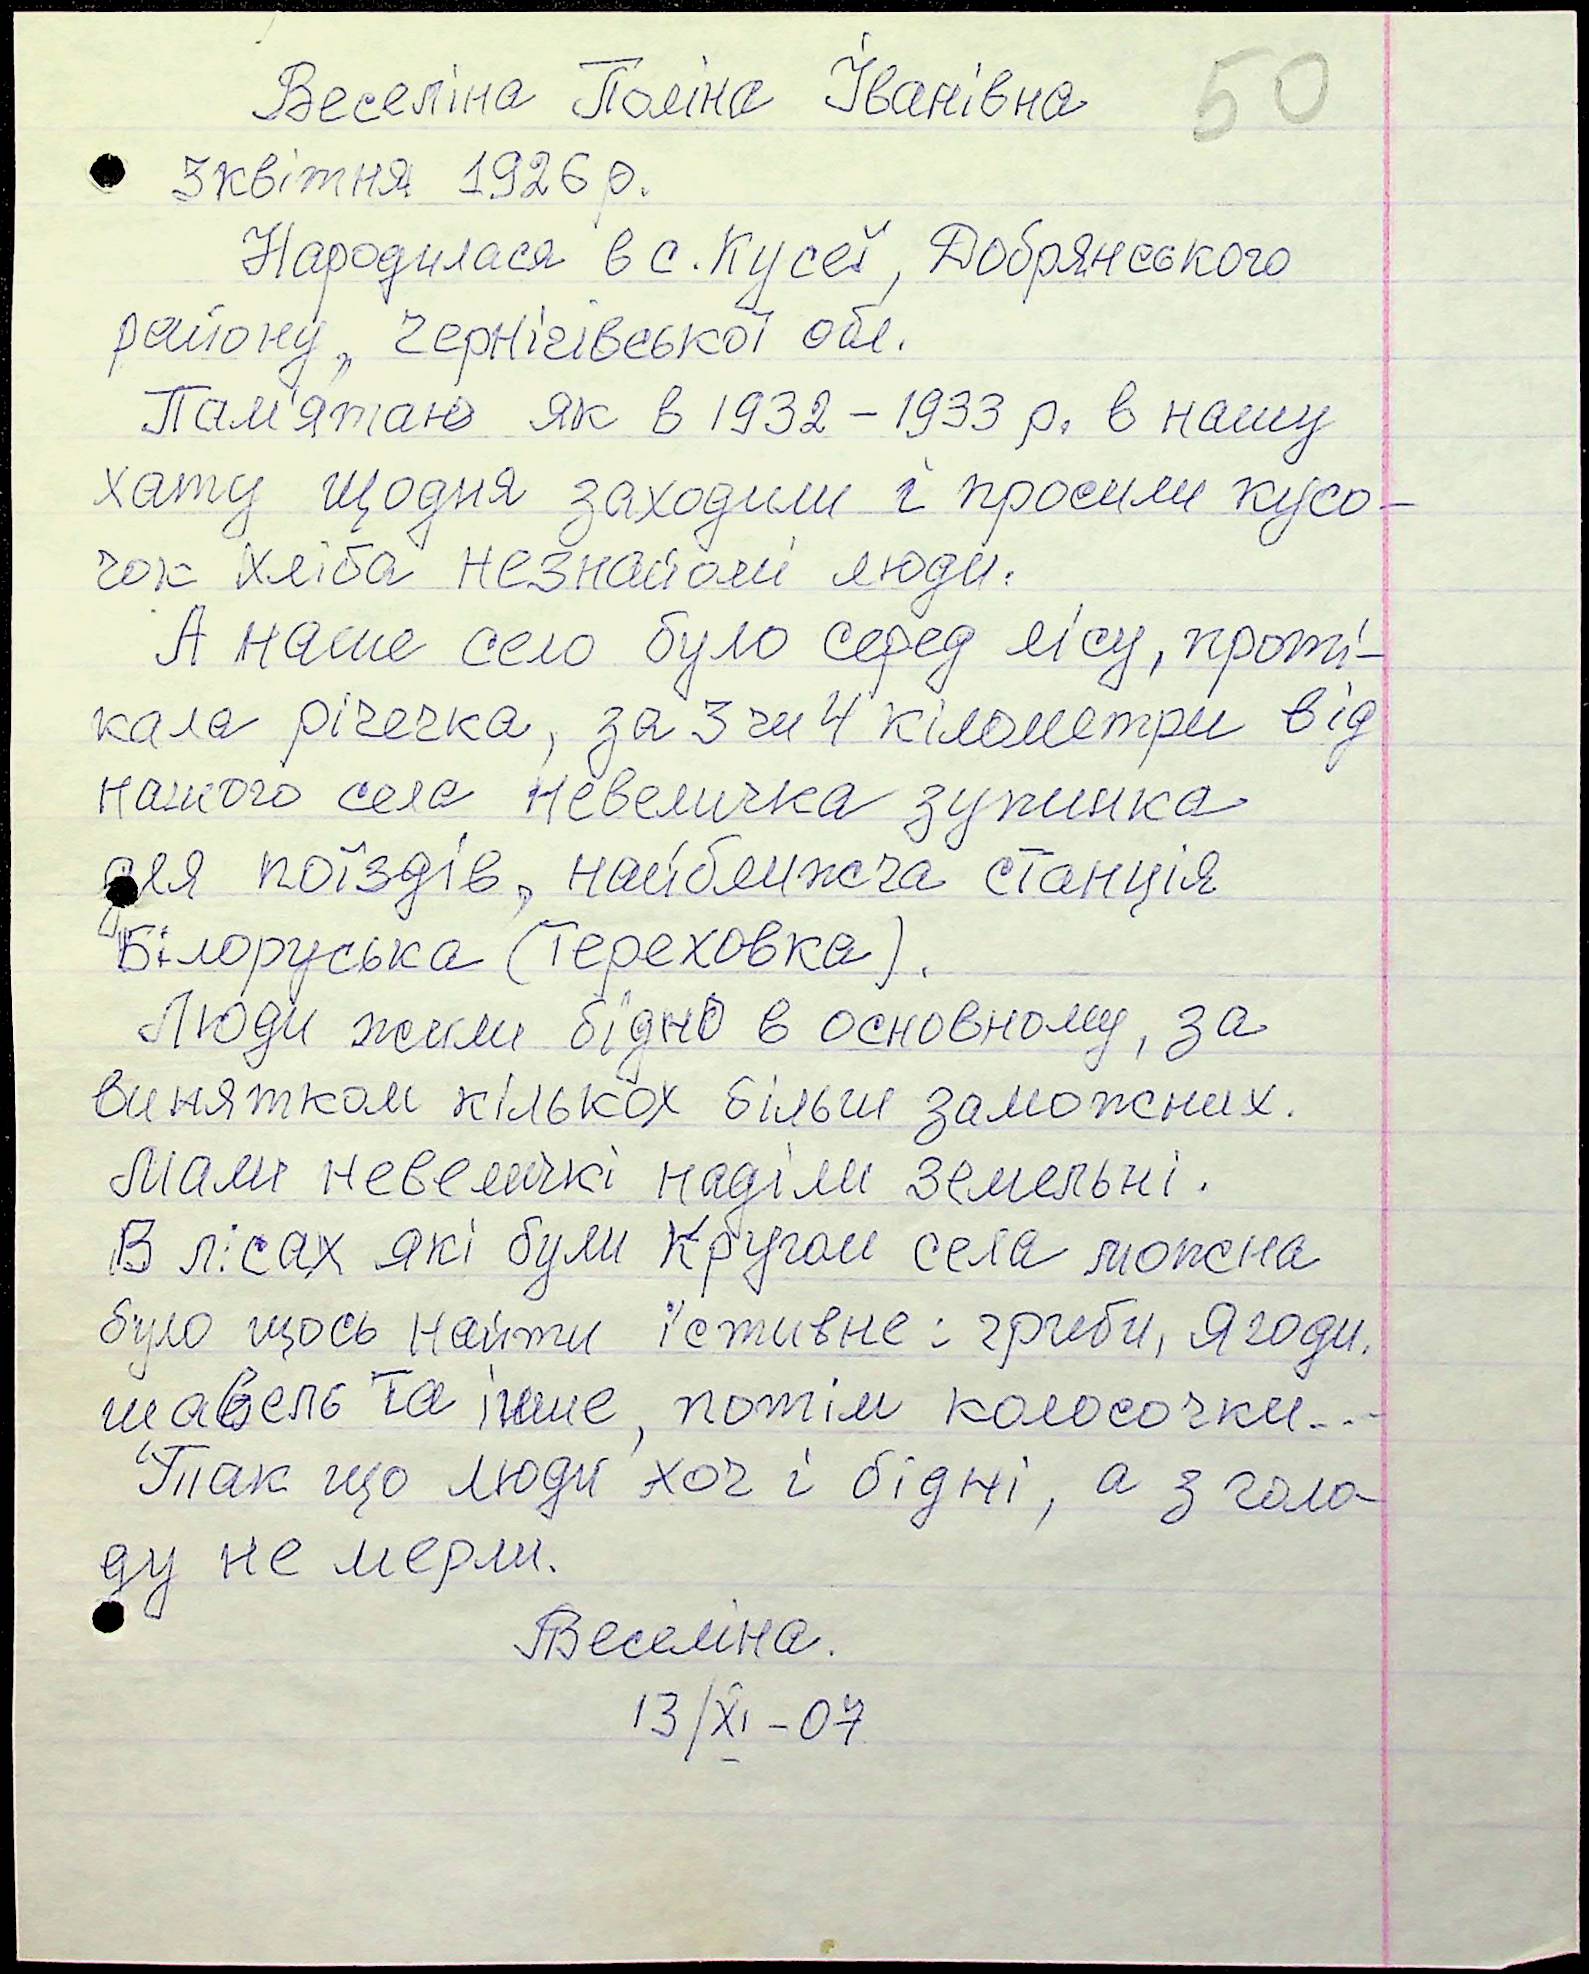 Веселіна Поліна Іванівна
50
3 квітня 1926 р.
Народилася в с. Кусеї, Добрянського
району, Чернігівської обл.
Пам'ятаю як в 1932 – 1933 р. в нашу
хату щодня заходили і просили кусо-
чок хліба незнайомі люди.
А наше село було серед лісу, проті-
кала річечка, за 3 чи 4 кілометри від
нашого села невеличка зупинка
для поїздів, найближча станція
Білоруська (Тереховка).
Люди жили бідно в основному, за
винятком кількох більш заможних.
Мали невеличкі наділи земельні.
В лісах які були кругом села можна
було щось найти їстивне: гриби, ягоди,
щавель та інше, потім колосочки...
Так що люди хоч і бідні, а з голо-
ду не мерли.
Веселіна.
13/XI – 07